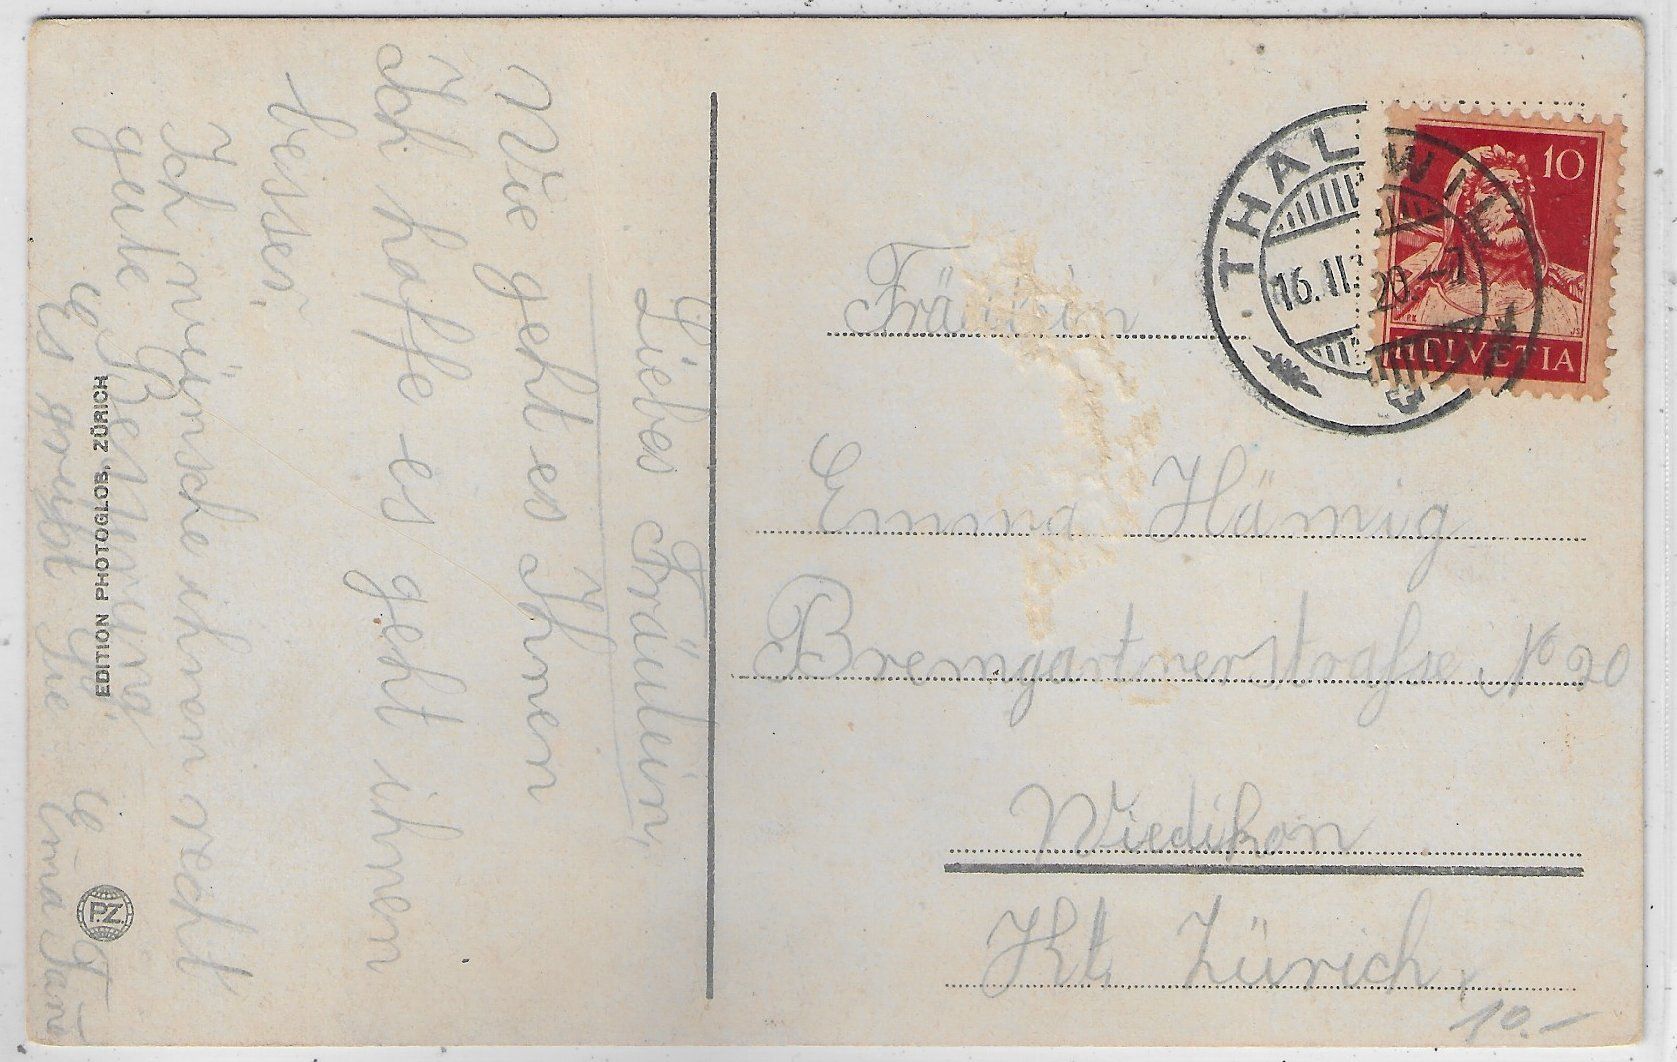 Liebes Fräulein,
Wie geht es Ihnen
Ich hoffe es geht ihnen
besser,
Ich wünsche ihnen recht
gute Besserung,
Es grüßt Sie
EDITION PHOTOGLOB, ZÜRICH
PZ
THALWIL
16.II.20.-7
10
HELVETIA
Fräulein
Emma Hämig
Bremgartnerstraſse No 20
Wiedikon
Kt. Zürich
10.-